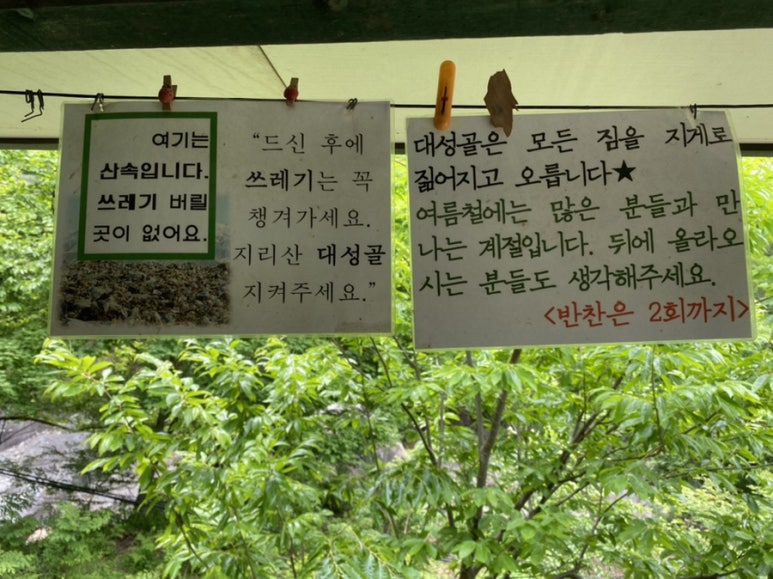 여기는
산속입니다.
쓰레기 버릴
곳이 없어요.
“드신 후에
쓰레기는 꼭
챙겨가세요.
지리산 대성골
지켜주세요.”
대성골은 모든 짐을 지게로
짊어지고 오릅니다★
여름철에는 많은 분들과 만
나는 계절입니다. 뒤에 올라오
시는 분들도 생각해주세요.
<반찬은 2회까지>